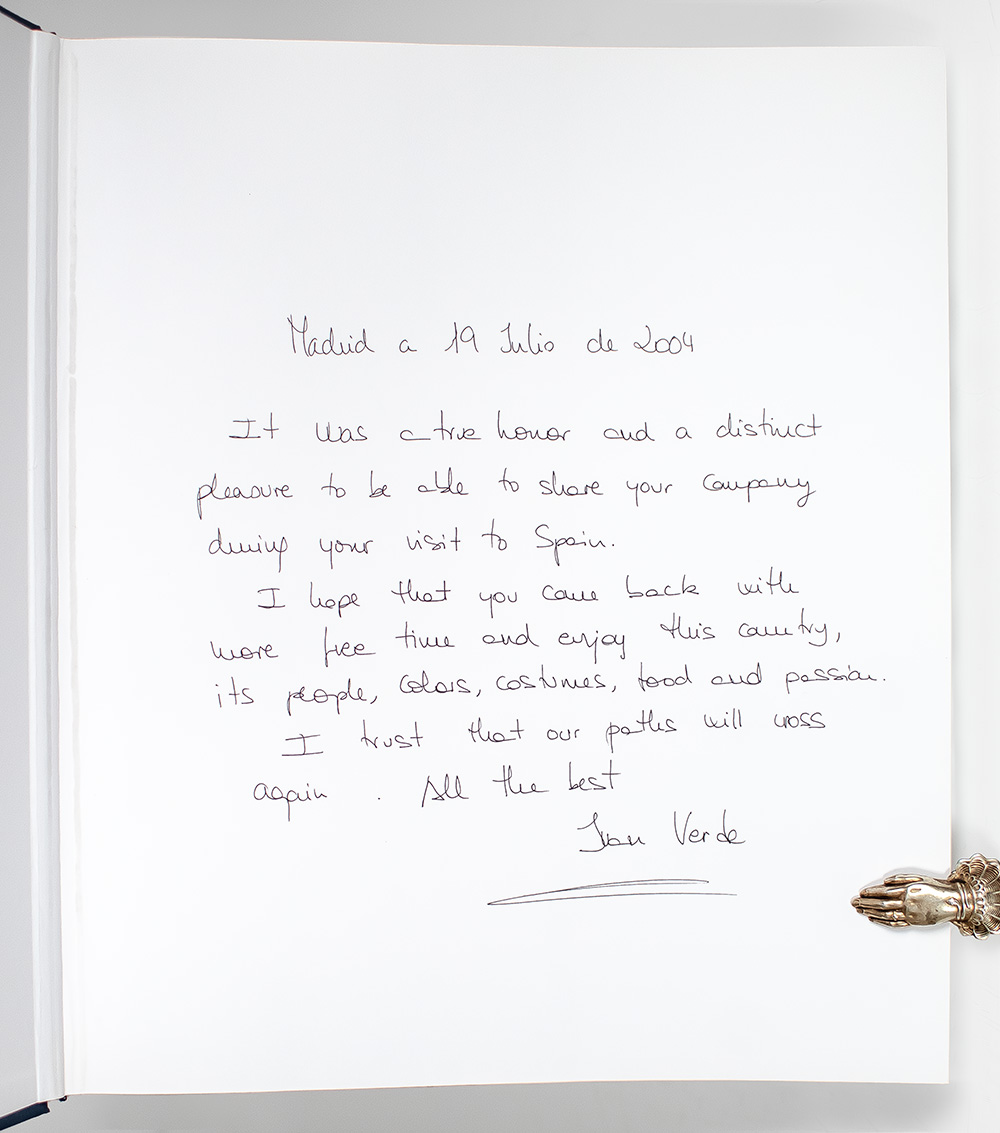 Madrid a 19 Julio de 2004
It was a true honor and a distinct
pleasure to be able to share your company
during your visit to Spain.
I hope that you come back with
more free time and enjoy this country,
its people, colors, costumes, food and passion.
I trust that our paths will cross
again. All the best
Ivan Verde